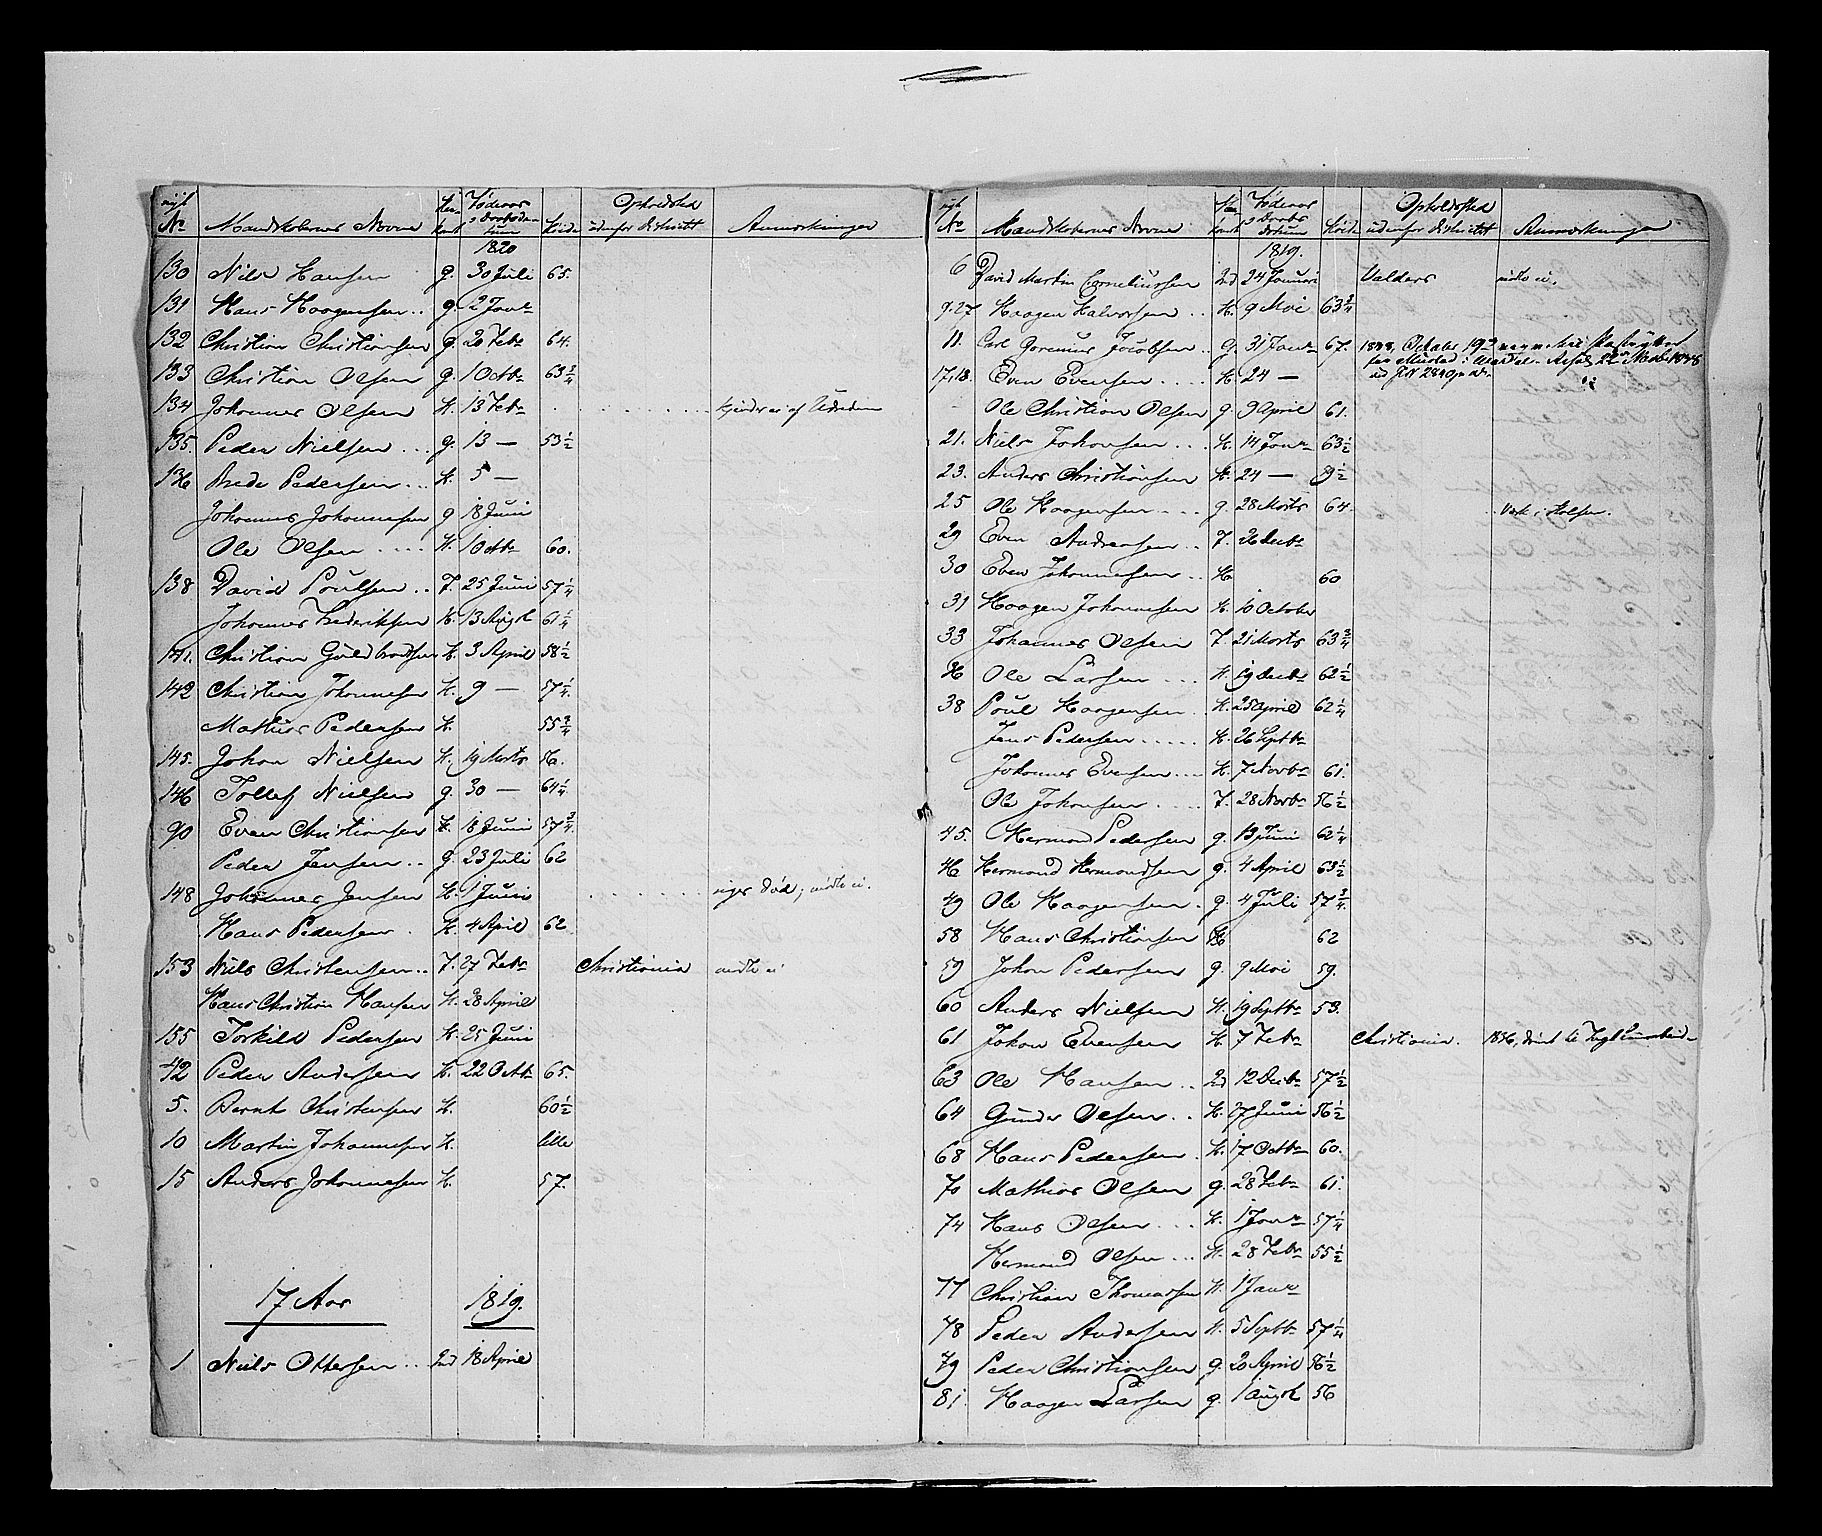 No Mandskabernes Navne Høide udenfor Districtet Anmærkninger
1820
130 Nils Hansen g. 30 Juli 65.
131 Hans Haagensen .. g. 2 Janr
132 Christian Christiansen g. 20 Febr 64.
133 Christian Olsen g. 1 Octbr 63 3/4
134 Johannes Olsen H. 13 Febr
135. Peder Nielsen ... g. 13 — 53 1/2
136 Peder Pedersen ... H. 5 —
Johannes Johannesen g 18 Juni
Ole Olsen .... H. 1 Octbr 60.
138 David Poulsen .. T. 25 Juni 57 1/4
Johannes Frederiksen H. 13 August 61 1/4
141. Christian Guldbrandsen H. 3 April 58 1/2
142 Christian Johannesen H. 9 — 57 1/4
Mathias Pedersen H. 55 3/4
145. Johan Nielsen H. 19 Marts 56.
146 Tollef Nielsen g. 30 — 64 1/4
90 Even Christiansen H. 18 Juni 57 3/4
Peder Jensen .. g. 23 Juli 62
148 Johannes Jensen H. 1 Juni siges død; mødte ei.
Hans Pedersen . H. 4 April 62
153 Niels Christensen .. T. 27 Febr Christiania mødte ei
Hans Christian Hansen H. 28 April
155 Torkild Pedersen H. 25 Juni
Peder Andersen H. 22 Octb 65.
5. Bernt Christensen H. 60 1/2
10 Martin Johannesen H. lille
15 Anders Johannesen H. 57.
17 Aar 1819.
1 Niels Ottersen .. 18 April
No Mandskabernes Navne Høide udenfor Districtet Anmærkninger
1819.
6 David Martin Corneliussen 24 Januari Valders mødte ei.
9.27 Haagen Halvorsen .. H. 9 Mai 63 3/4
11. Carl Jacobsen g. 31 Janr 67. 1838, October
17.18. Even Evensen .... H. 24 —
Ole Christian Olsen g. 9 April 61.
21. Niels Johansen ... H. 14 Janr 63 1/2
23. Anders Christiansen H. 24 — 9 1/2
25 Ole Haagensen .... g. 28 Marts 64.
29 Even Andersen .. T. 26 Decbr
30 Even Johannesen .. H. 60
31 Haagen Johannesen H. 10 October
33 Johannes Olsen T. 21 Marts 63 3/4
36 Ole Larsen ... H. 19 Decbr 62 1/2
38 Poul Haagensen H. 25 April 62 1/4
Jens Pedersen ..... H. 26 Septbr
Johannes Evensen ... H. 7 Novbr 61.
Ole Johansen .... T. 28 Novbr 56 1/2
45. Hermand Pedersen g. 13 Juni 62 1/4
46 Hermand Hermandsen g. 4 April 63 1/2
49 Ole Haagensen . g. 4 Juli 57 3/4
58 Hans Christiansen H 62
59 Johan Pedersen g. 9 Mai 59.
60 Anders Nielsen H. 19 Septbr 53.
61 Johan Evensen H. 7 Febr Christiania. 1836,
63 Ole Hansen .. 12 Decbr 57 1/2
64 Gunder Olsen .. H. 17 Juni 56 1/2
68 Hans Pedersen . H. 17 Octbr 60.
70 Mathias Olsen g. 28 Febr 61.
74 Hans Olsen ... H. 1 Janr 57 1/4
Hermand Olsen ... H. 28 Febr 55 1/2
77 Christian Thomassen H. 1 Janr
78 Peder Andersen H. 5 Septbr 57 1/4
79 Peder Christiansen g. 20 April 56 1/2
81. Haagen Larsen g. 1 August 56